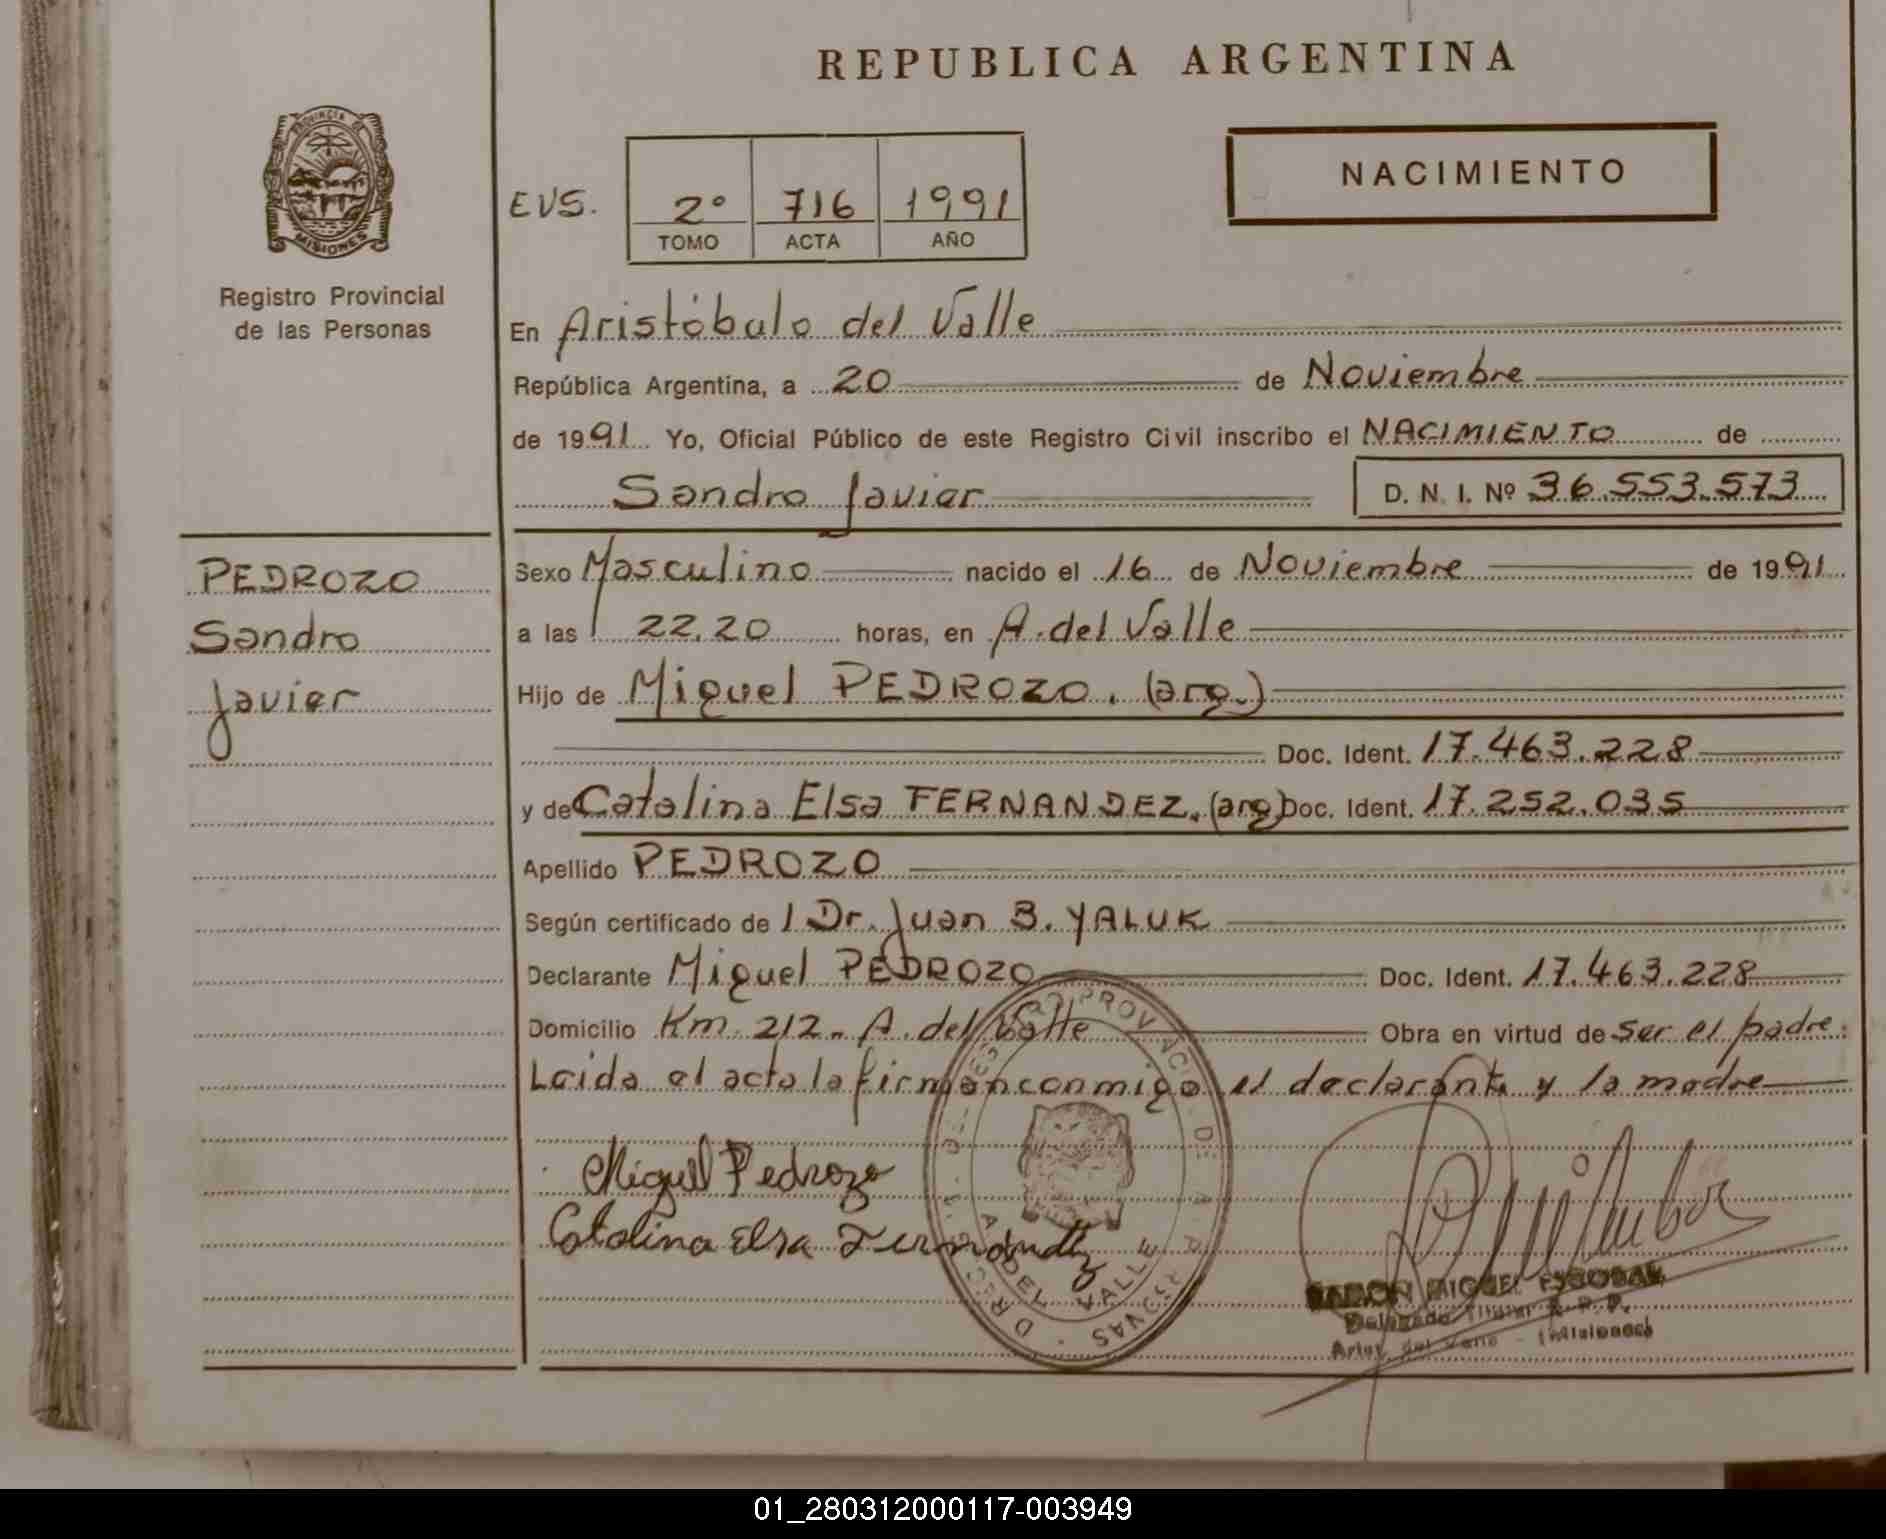 REPUBLICA ARGENTINA
PROVINCIA DE MISIONES
Registro Provincial
de las Personas
NACIMIENTO
EVS. 2° 716 1991
TOMO ACTA AÑO
En Aristóbulo del Valle
República Argentina, a 20 de Noviembre
de 1991 Yo, Oficial Público de este Registro Civil inscribo el NACIMIENTO de
Sandro Javier D. N. I. Nº 36.553.573
PEDROZO
Sandro
Javier
Sexo Masculino nacido el 16 de Noviembre de 1991
a las 22.20 horas, en A. del Valle
Hijo de Miguel PEDROZO. (arg.)
Doc. Ident. 17.463.228
y de Catalina Elsa FERNANDEZ. (arg) Doc. Ident. 17.252.035
Apellido PEDROZO
Según certificado de l Dr. Juan B. YALUK
Declarante Miguel PEDROZO Doc. Ident. 17.463.228
Domicilio Km. 212. A. del Valle Obra en virtud de ser el padre.
Leida el acta la firman conmigo el declarante y la madre
Miguel Pedrozo
Catalina Elsa Fernandez
A. DEL VALLE
RAMON MIGUEL ESCOBAR
Delegado Titular R. P. P.
Aristo. del Valle - (Misiones)
01_280312000117-003949